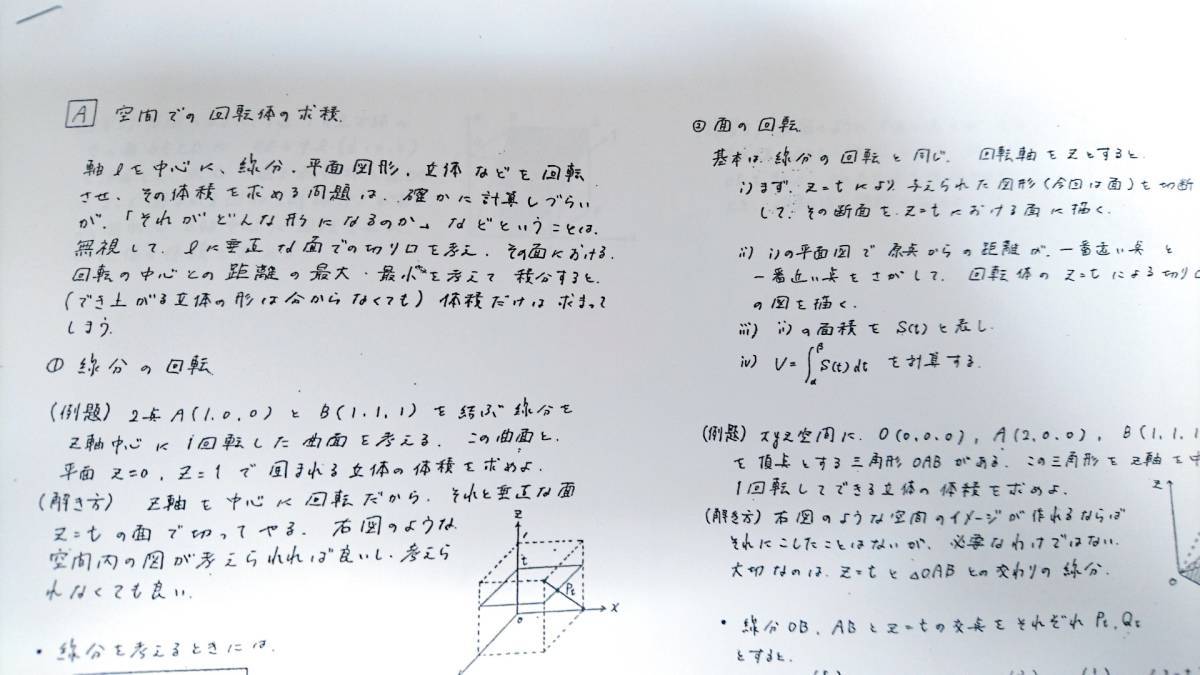 A 空間での回転体の求積
軸lを中心に、線分、平面図形、立体などを回転
させ、その体積を求める問題は、確かに計算しづらい
が、「それがどんな形になるのか」などということは、
無視して、lに垂直な面での切り口を考え、その面における
回転の中心との距離の最大・最小を考えて積分すると、
(でき上がる立体の形は分からなくても)体積だけは求まって
しまう。
① 線分の回転
(例題) 2点A(1,0,0)とB(1,1,1)を結ぶ線分を
Z軸中心に1回転した曲面を考える。この曲面と、
平面Z=0, Z=1で囲まれる立体の体積を求めよ。
(解き方) Z軸を中心に回転だから、それと垂直な面
Z=tの面で切ってやる。右図のような
空間内の図が考えられれば良いし、考えら
れなくても良い。
z
1
t
Pt
o
x
・線分を考えるときには、
② 面の回転
基本は、線分の回転と同じ。回転軸をZとすると、
i) まず、Z=tにより、与えられた図形(今回は面)を切断
して、その断面を、Z=tにおける面に描く。
ii) i)の平面図で原点からの距離が、一番近い点と
一番近い点をさがして、回転体のZ=tによる切り
の図を描く。
iii) ii)の面積をS(t)と表し、
iv) V=∫αβ S(t)dt を計算する。
(例題) xyz空間に、O(0,0,0), A(2,0,0), B(1,1,1
を頂点とする三角形OABがある。この三角形をZ軸を中
1回転してできる立体の体積を求めよ。
(解き方) 右図のような空間のイメージが作れるならば
それにこしたことはないが、必要なわけではない。
大切なのは、Z=tと△OABとの交わりの線分。
z
o
・線分OB, ABとZ=tの交点をそれぞれPt, Qt
とすると、